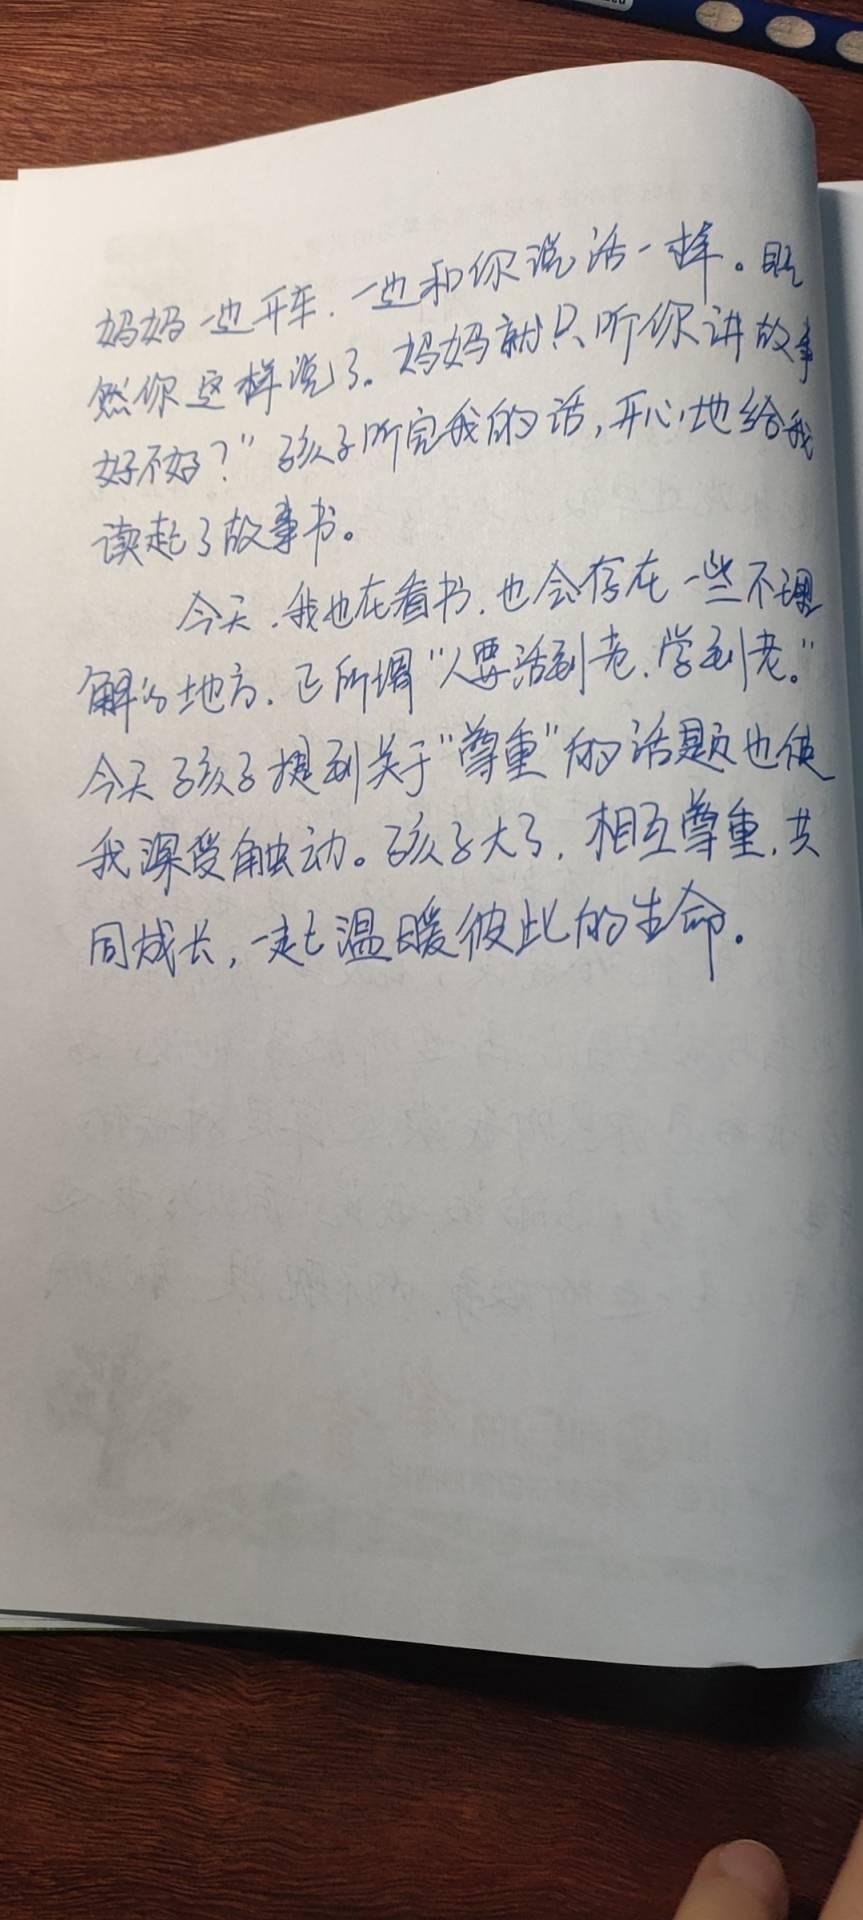 妈妈一边开车，一边和你说话一样。既
然你这样说了。妈妈就只听你讲故事
好不好？”孩子听完我的话，开心地给我
读起了故事书。
今天，我也在看书，也会存在一些不理
解的地方，正所谓“人要活到老，学到老。”
今天孩子提到关于“尊重”的话题也使
我深受触动。孩子大了，相互尊重，共
同成长，一起温暖彼此的生命。